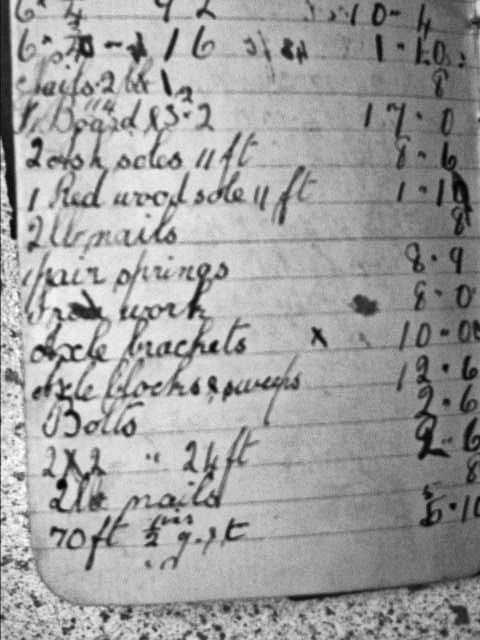 6 · 4 9 2 10 - 4
6 · 16 1 · 10
nails 2 lb 8
Board 17 · 0
2 Ash soles 11 ft 8 · 6
1 Red wood sole 11 ft 1 · 10
2 lb nails 8
pair springs 8 · 9
work 8 · 0
Axle brackets x 10 - 00
Axle blocks & sweeps 12 · 6
Bolts 2 · 6
2 X 2 " 24 ft 2 · 6
2 lb nails 8
70 ft ½ ins 5 · 10